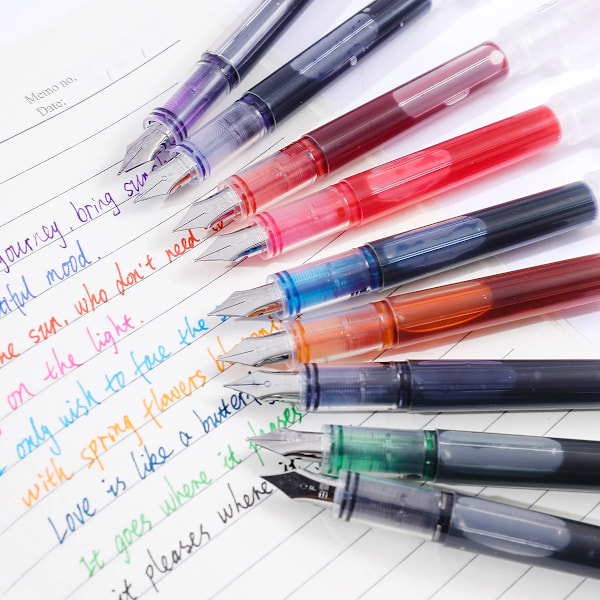 Memo no.
Date: / /
journey, bring sun
ful mood.
sun, who don't need
on the light.
only wish to face the
with spring flowers bl
Love is like a butter
It goes where it pleases
it pleases where